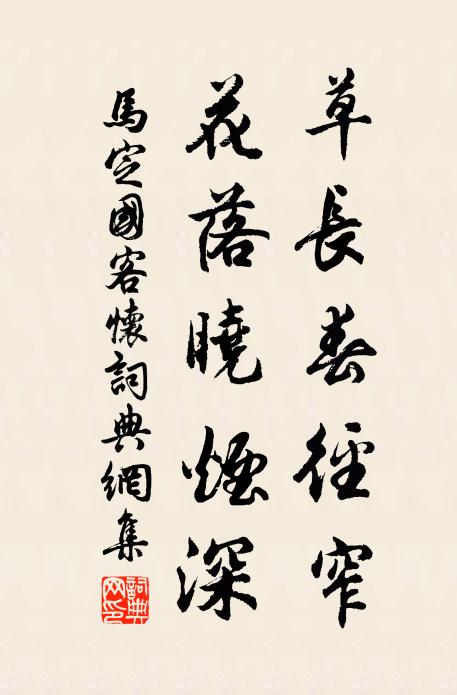 草長春徑窄
花落曉煙深
馬定國客懷詞典網集
詞典網印